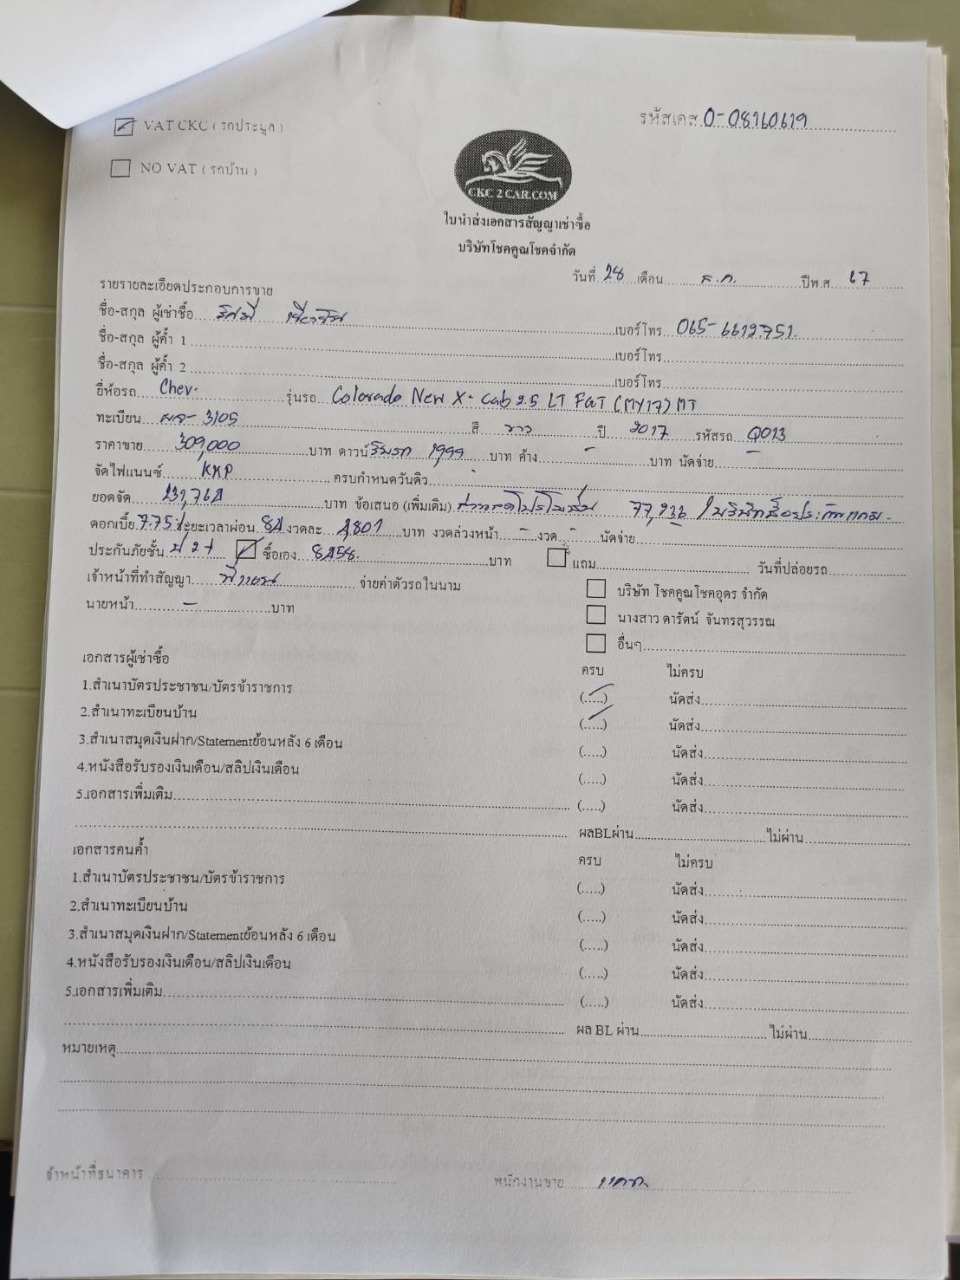 VAT CKC ( รถประมูล )
รหัสเคส 0-08160619
NO VAT ( รถบ้าน )
CKC 2 CAR.COM
ใบนำส่งเอกสารสัญญาเช่าซื้อ
บริษัทโชคคูณโชคจำกัด
วันที่ 28 เดือน ธ.ค. ปีพ.ศ. 67
รายรายละเอียดประกอบการขาย
ชื่อ-สกุล ผู้เช่าซื้อ เบอร์โทร 065-6612751
ชื่อ-สกุล ผู้ค้ำ 1 เบอร์โทร
ชื่อ-สกุล ผู้ค้ำ 2 เบอร์โทร
ยี่ห้อรถ Chev. รุ่นรถ Colorado New X-Cab 2.5 LT FGT (MY17) MT
ทะเบียน ผจ-3105 สี ขาว ปี 2017 รหัสรถ Q013
ราคาขาย 309,000 บาท ดาวน์ริมรถ 1999 บาท ค้าง - บาท นัดจ่าย -
จัดไฟแนนซ์ KKP ครบกำหนดวันดิว
ยอดจัด 231,768 บาท ข้อเสนอ (เพิ่มเติม) ส่วนลดโปรโมชั่น 77,232
ดอกเบี้ย 7.75 ระยะเวลาผ่อน 84 งวดละ งวดล่วงหน้า - งวด - นัดจ่าย
ประกันภัยชั้น ป 2+ ซื้อเอง 8458 บาท แถม วันที่ปล่อยรถ
เจ้าหน้าที่ทำสัญญา จ่ายค่าตัวรถในนาม บริษัท โชคคูณโชคอุดร จำกัด
นายหน้า - บาท นางสาว ดารัตน์ จันทรสุวรรณ
อื่นๆ
เอกสารผู้เช่าซื้อ ครบ ไม่ครบ
1.สำเนาบัตรประชาชน/บัตรข้าราชการ (.....) นัดส่ง
2.สำเนาทะเบียนบ้าน (.....) นัดส่ง
3.สำเนาสมุดเงินฝาก/Statementย้อนหลัง 6 เดือน (.....) นัดส่ง
4.หนังสือรับรองเงินเดือน/สลิปเงินเดือน (.....) นัดส่ง
5.เอกสารเพิ่มเติม (.....) นัดส่ง
ผลBLผ่าน ไม่ผ่าน
เอกสารคนค้ำ ครบ ไม่ครบ
1.สำเนาบัตรประชาชน/บัตรข้าราชการ (.....) นัดส่ง
2.สำเนาทะเบียนบ้าน (.....) นัดส่ง
3.สำเนาสมุดเงินฝาก/Statementย้อนหลัง 6 เดือน (.....) นัดส่ง
4.หนังสือรับรองเงินเดือน/สลิปเงินเดือน (.....) นัดส่ง
5.เอกสารเพิ่มเติม (.....) นัดส่ง
ผล BL ผ่าน ไม่ผ่าน
หมายเหตุ
จ้าหน้าที่ธนาคาร พนักงานขาย